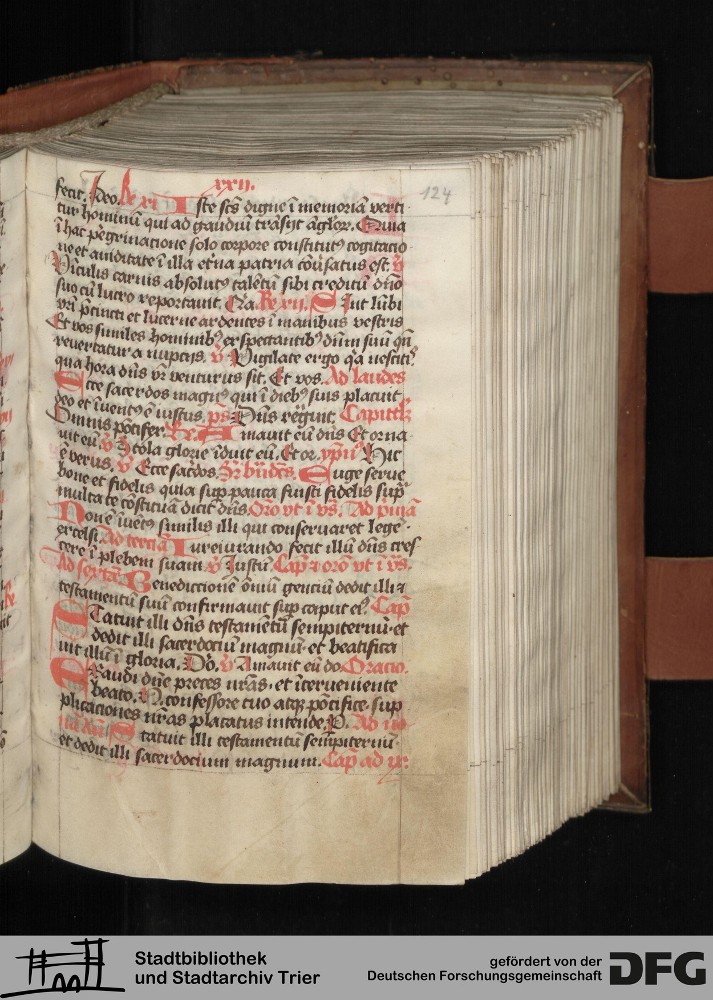 xxij.
124
fecit. Ideo. Rx xi Iste scs digne ī memoriā verti
tur hominū qui ad gaudiū trāsijt āgloꝝ. Quia
ī hac pēgrinacione solo corpore constitutꝰ cogitacio
ne et auiditate ī illa etna patria cōūsatus est. v̄
Vinculis carnis absolutꝰ talētū sibi creditū dn̄o
suo cū lucro reportauit. Qa. Rx xij. Sint lūbi
vr̄i p̄cincti et lucerne ardentes ī manibus vestris
Et vos similes hominibꝰ expectantibꝰ dūm suū qn̄
reuertatur a nupcijs. v̄ Vigilate ergo qa nescitꝭ
qua hora dn̄s vr̄ venturus sit. Et vos. Ad laudes
Ecce sacerdos magnꝰ qui ī diebꝰ suis placuit
deo et īuentꝰ ē iustus. ps Dn̄s reg̃uit. Capittꝉꝫ
uit eū. v̄ Stola glorie īduit eū. Et or. ypn̄ꝰ Hic
ē verus. v̄ Ecce sacdos. Sr̄ bn̄dēs Euge serue
bone et fidelis quia suꝑ pauca fuisti fidelis supͣ
multa te cōstituā dicit dn̄s. Oro vt ī vꝭ. Ad pīmā
Non ē īuētꝰ similis illi qui conseruaret lege
excelsi. Ad terciā Iureiurando fecit illū dn̄s cres
cere ī plebem suam v̄ Iustū Cap̄ ⁊ oro vt ī vꝭ.
Ad sextā. Benediccionē ōniū genciū dedit illi ⁊
testamentū suū confirmauit suꝑ caput eiꝰ Cap̄
Statuit illi dn̄s testamētū sempiternū et
dedit illi sacerdociū magnū. et beatifica
uit illū ī gloria. Dō. v̄ Amauit eū do Oracio.
Exaudi dn̄e preces nr̄as. et īterueniente
beato. N. confessore tuo atqꝫ pōtifice. sup
plicaciones nr̄as placatus intende. P. Ad no
nā añ Statuit illi testamentū sempiternū.
et dedit illi sacerdocium magnum. Cap̄ ad ix
Stadtbibliothek
und Stadtarchiv Trier
gefördert von der
Deutschen Forschungsgemeinschaft DFG